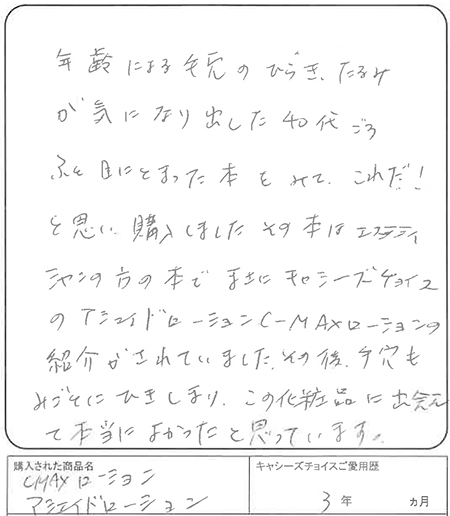 年齢による毛穴のひらき、たるみ
が気になり出した40代ごろ
ふと目にとまった本をみて、これだ!
と思い購入しました その本はエステティ
シャンの方の本で まさにキャシーズチョイス
のアシェイドローションC-MAXローションの
紹介がされていました。その後、毛穴も
みごとにひきしまり、この化粧品に出会え
て本当によかったと思っています。
購入された商品名
CMAXローション
アシェイドローション
キャシーズチョイスご愛用歴
3年 カ月